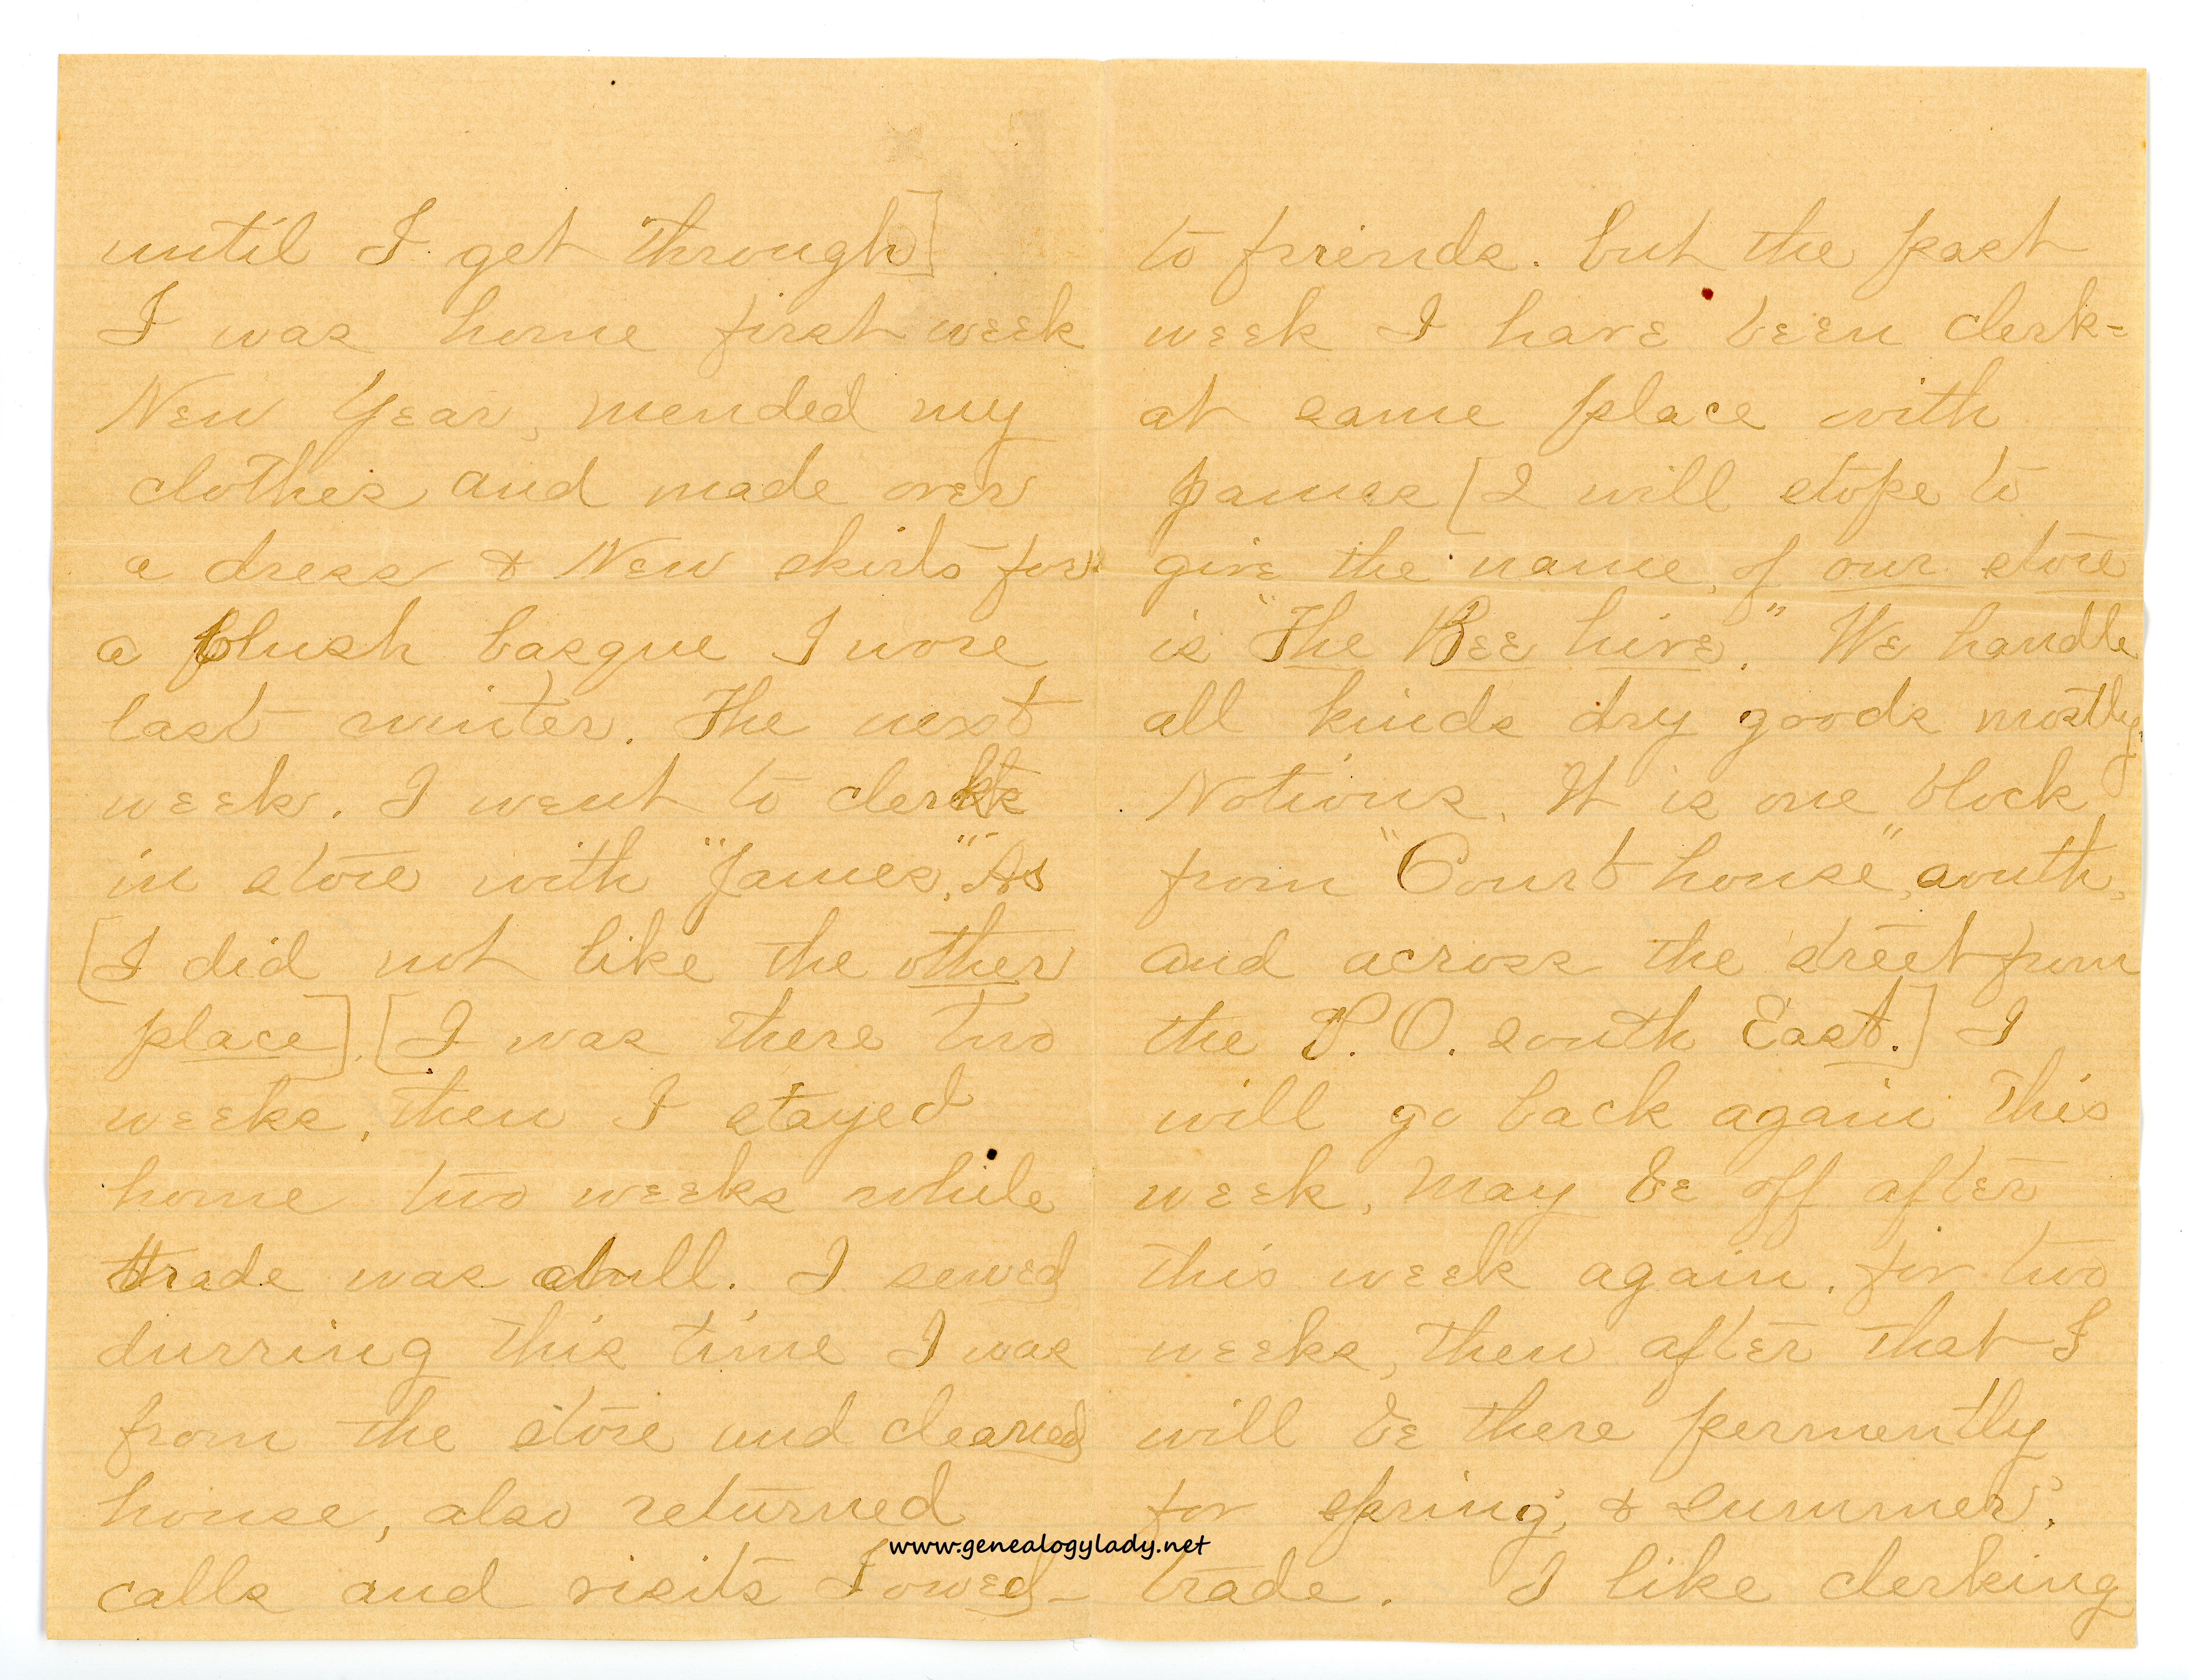 until I get through]
I was home first week
New Year, mended my
clothes and made over
a dress & New skirts for
a plush basque I wore
last winter. The next
week. I went to clerk
in store with "James," As
[I did not like the other
place]. [I was there two
weeks, then I stayed
home two weeks while
trade was dull. I sewed
durring this time I was
from the store and cleaned
house, also returned
calls and visits I owed-
to friends. but the past
week I have been clerk=
at same place with
James [I will stope to
give the name, of our store
is "The Bee hive." We handle
all kinds dry goods mostly,
Notions. It is one block
from "Court house", south,
and across the street from
the P. O. south East.] I
will go back again this
week, May be off after
this week again. for two
weeks, then after that I
will be there permently
for spring, & summer.
trade. I like clerking
www.genealogylady.net